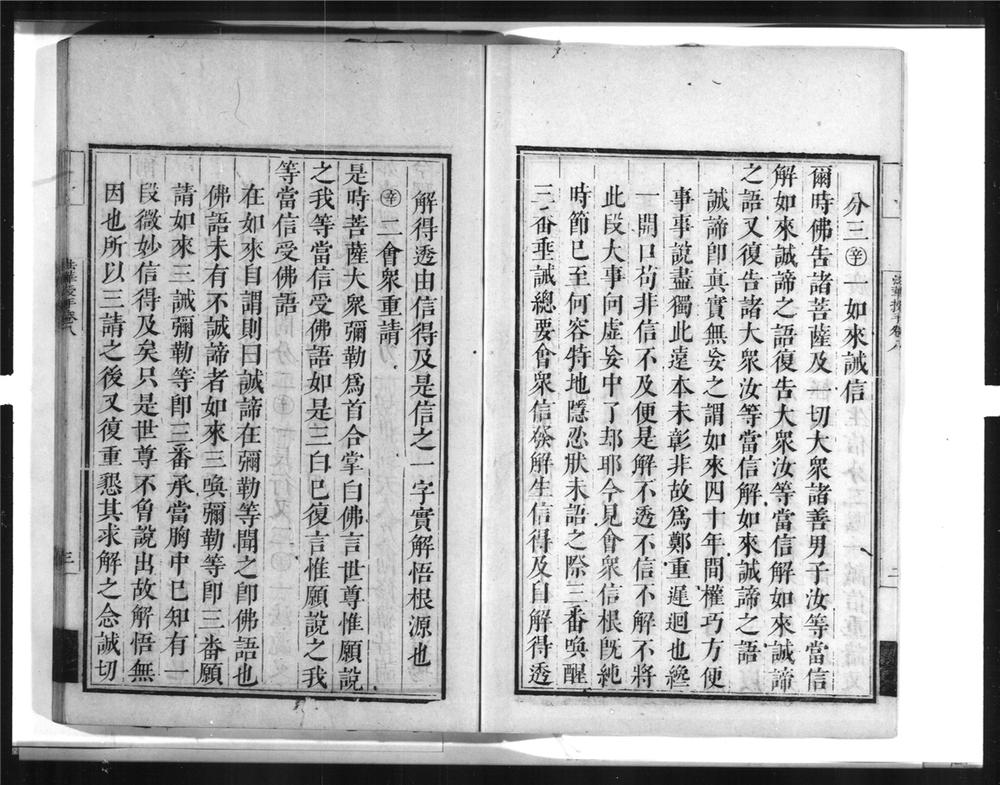 分三㊛一如來誡信
爾時佛告諸菩薩及一切大衆諸善男子汝等當信
解如來誠諦之語復告大衆汝等當信解如來誠諦
之語又復告諸大衆汝等當信解如來誠諦之語
誠諦卽眞實無妄之謂如來四十年間權巧方便
事事說盡獨此遠本未彰非故爲鄭重遲迴也纔
一開口苟非信不及便是解不透不信不解不將
此段大事向虛妄中了却耶今見會衆信根旣純
時節巳至何容特地隱忍狀未語之際三番喚醒
三番垂誡總要會衆信發解生信得及自解得透
解得透由信得及是信之一字實解悟根源也
辛二會衆重請
是時菩薩大衆彌勒爲首合掌白佛言世尊惟願說
之我等當信受佛語如是三白巳復言惟願說之我
等當信受佛語
在如來自謂則曰誠諦在彌勒等聞之卽佛語也
佛語未有不誠諦者如來三喚彌勒等卽三番願
請如來三誡彌勒等卽三番承當胸中巳知有一
段微妙信得及矣只是世尊不肯說出故解悟無
因也所以三請之後又復重懇其求解之念誠切